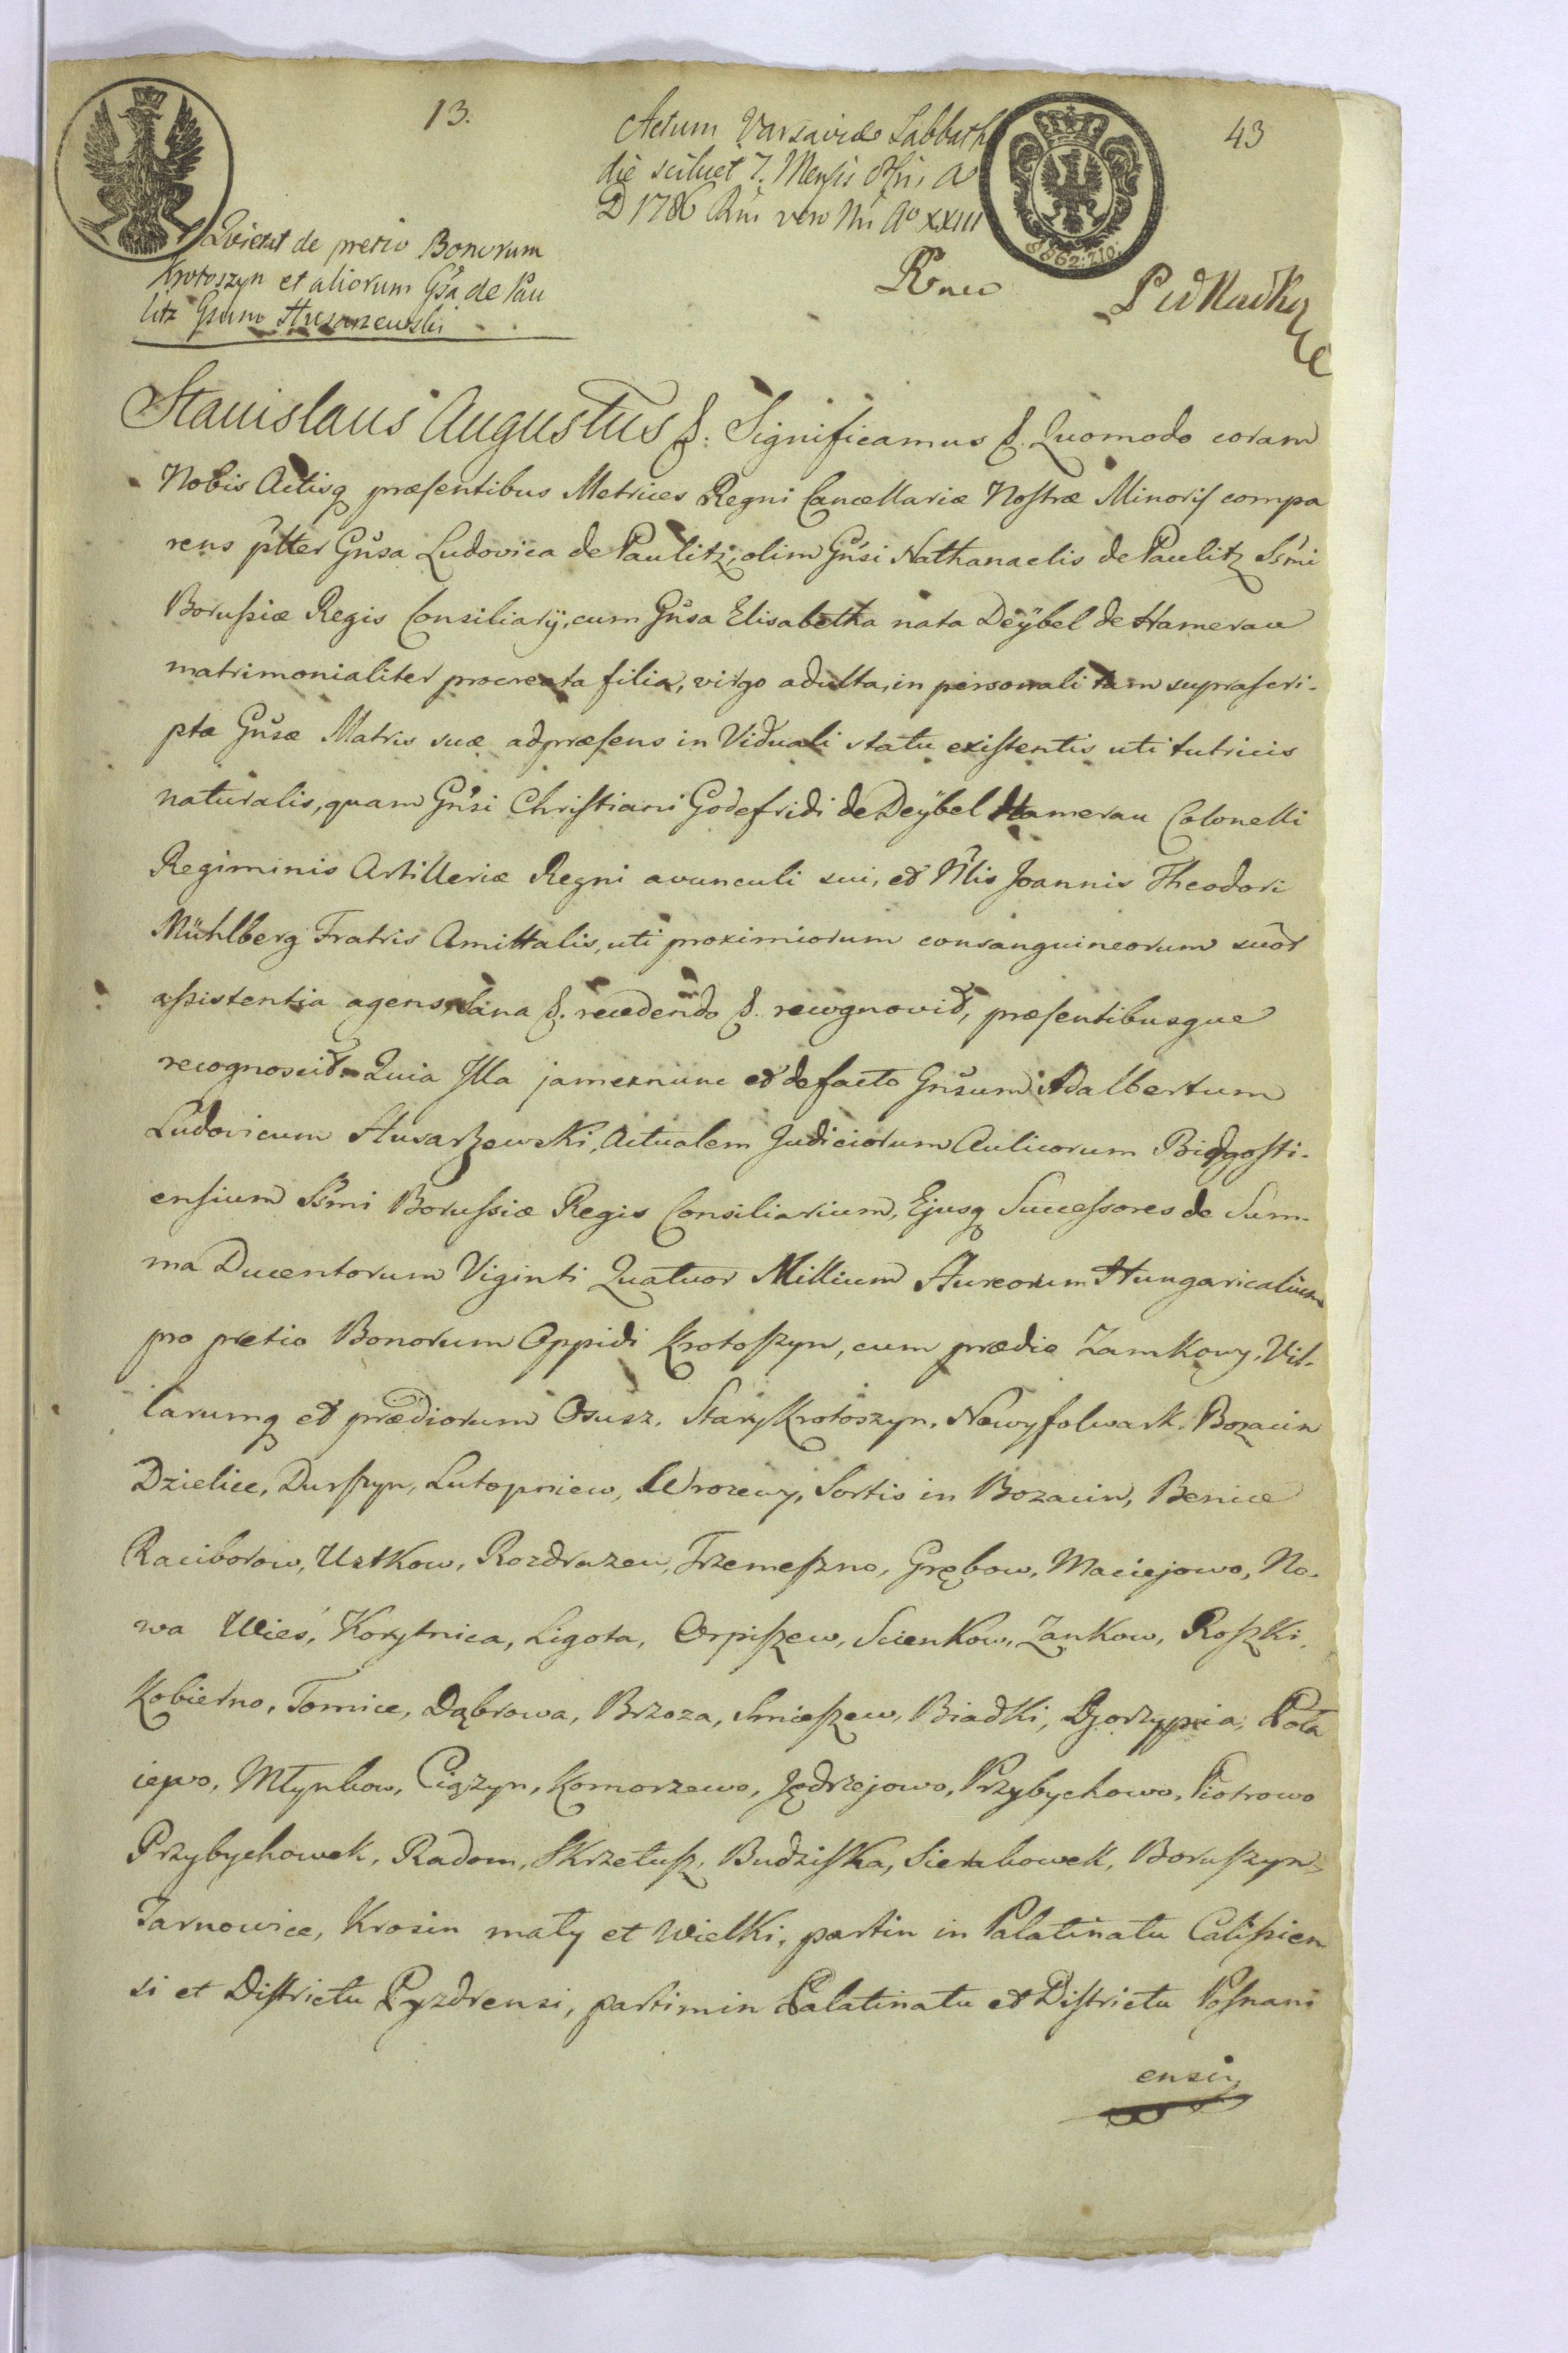 13.
43
Actum Varsaviæ Sabbath
die scilicet 7. Mensis 8bris A
D 1786 Rni vero Nri Ao XXIII
Quietat de pretio Bonorum
Krotoszyn et aliorum Gsa de Pau
litz Gsum Husarzewski
Stanislaus Augustus &. Significamus &. Quomodo coram
Nobis Actisq præsentibus Metrices Regni Cancellariæ Nostræ Minoris compa
rens pltter Gnsa Ludovica de Paulitz, olim Gnsi Nathanaelis de Paulitz Ssmi
Borussiæ Regis Consiliarij, cum Gnsa Elisabetha nata Deÿbel de Hamerau
matrimonialiter procreata filia, virgo adulta, in personali tam suprascri-
ptæ Gnsæ Matris suæ ad præsens in Viduali statu existentis uti tutricis
naturalis, quam Gnsi Christiani Godefridi de Deÿbel Hamerau Colonelli
Regiminis Artilleriæ Regni avunculi sui, et Nlis Joannis Theodori
Mühlberg Fratris Amittalis, uti proximiorum consanguineorum suor
assistentia agens, sana &. recedendo &. recognovit, præsentibusque
recognoscit. Quia Illa jam ex nunc et de facto Gnsum Adalbertum
Ludovicum Husarzewski, Actualem Judiciorum Aulicorum Bidgosti-
ensium Ssmi Borussiæ Regis Consiliarium, Ejusq Successores de Sum-
ma Ducentorum Viginti Quatuor Millium Aureorum Hungaricalium
pro pretio Bonorum Oppidi Krotoszyn, cum prædio Zamkowy, Vil-
larumq et prædiorum Osusz, Stary Krotoszyn, Nowy folwark, Bozacin
Dzielice, Durszyn, Lutogniew, Wrozewy, Sortis in Bozacin, Benice
Raciborow, Ustkow, Rozdrazew, Trzemeszno, Grębow, Maciejowo, No-
wa Wieś, Korytnica, Ligota, Orpiszew, Scienkow, Zankow, Roszki,
Kobierno, Tomice, Dąbrowa, Brzoza, Smieszew, Biadki, Pola
iewo, Młynkow, Ciązyn, Komorzewo, Jędrzejowo, Przybychowo, Piotrowo
Przybychowek, Radom, Skrzetusz, Budziska, Sierakowek, Boruszyn,
Tarnowice, Krosin mały et Wielki, partim in Palatinatu Calissien
si et Districtu Pyzdrensi, partim in Palatinatu et Districtu Posnani
ensi,